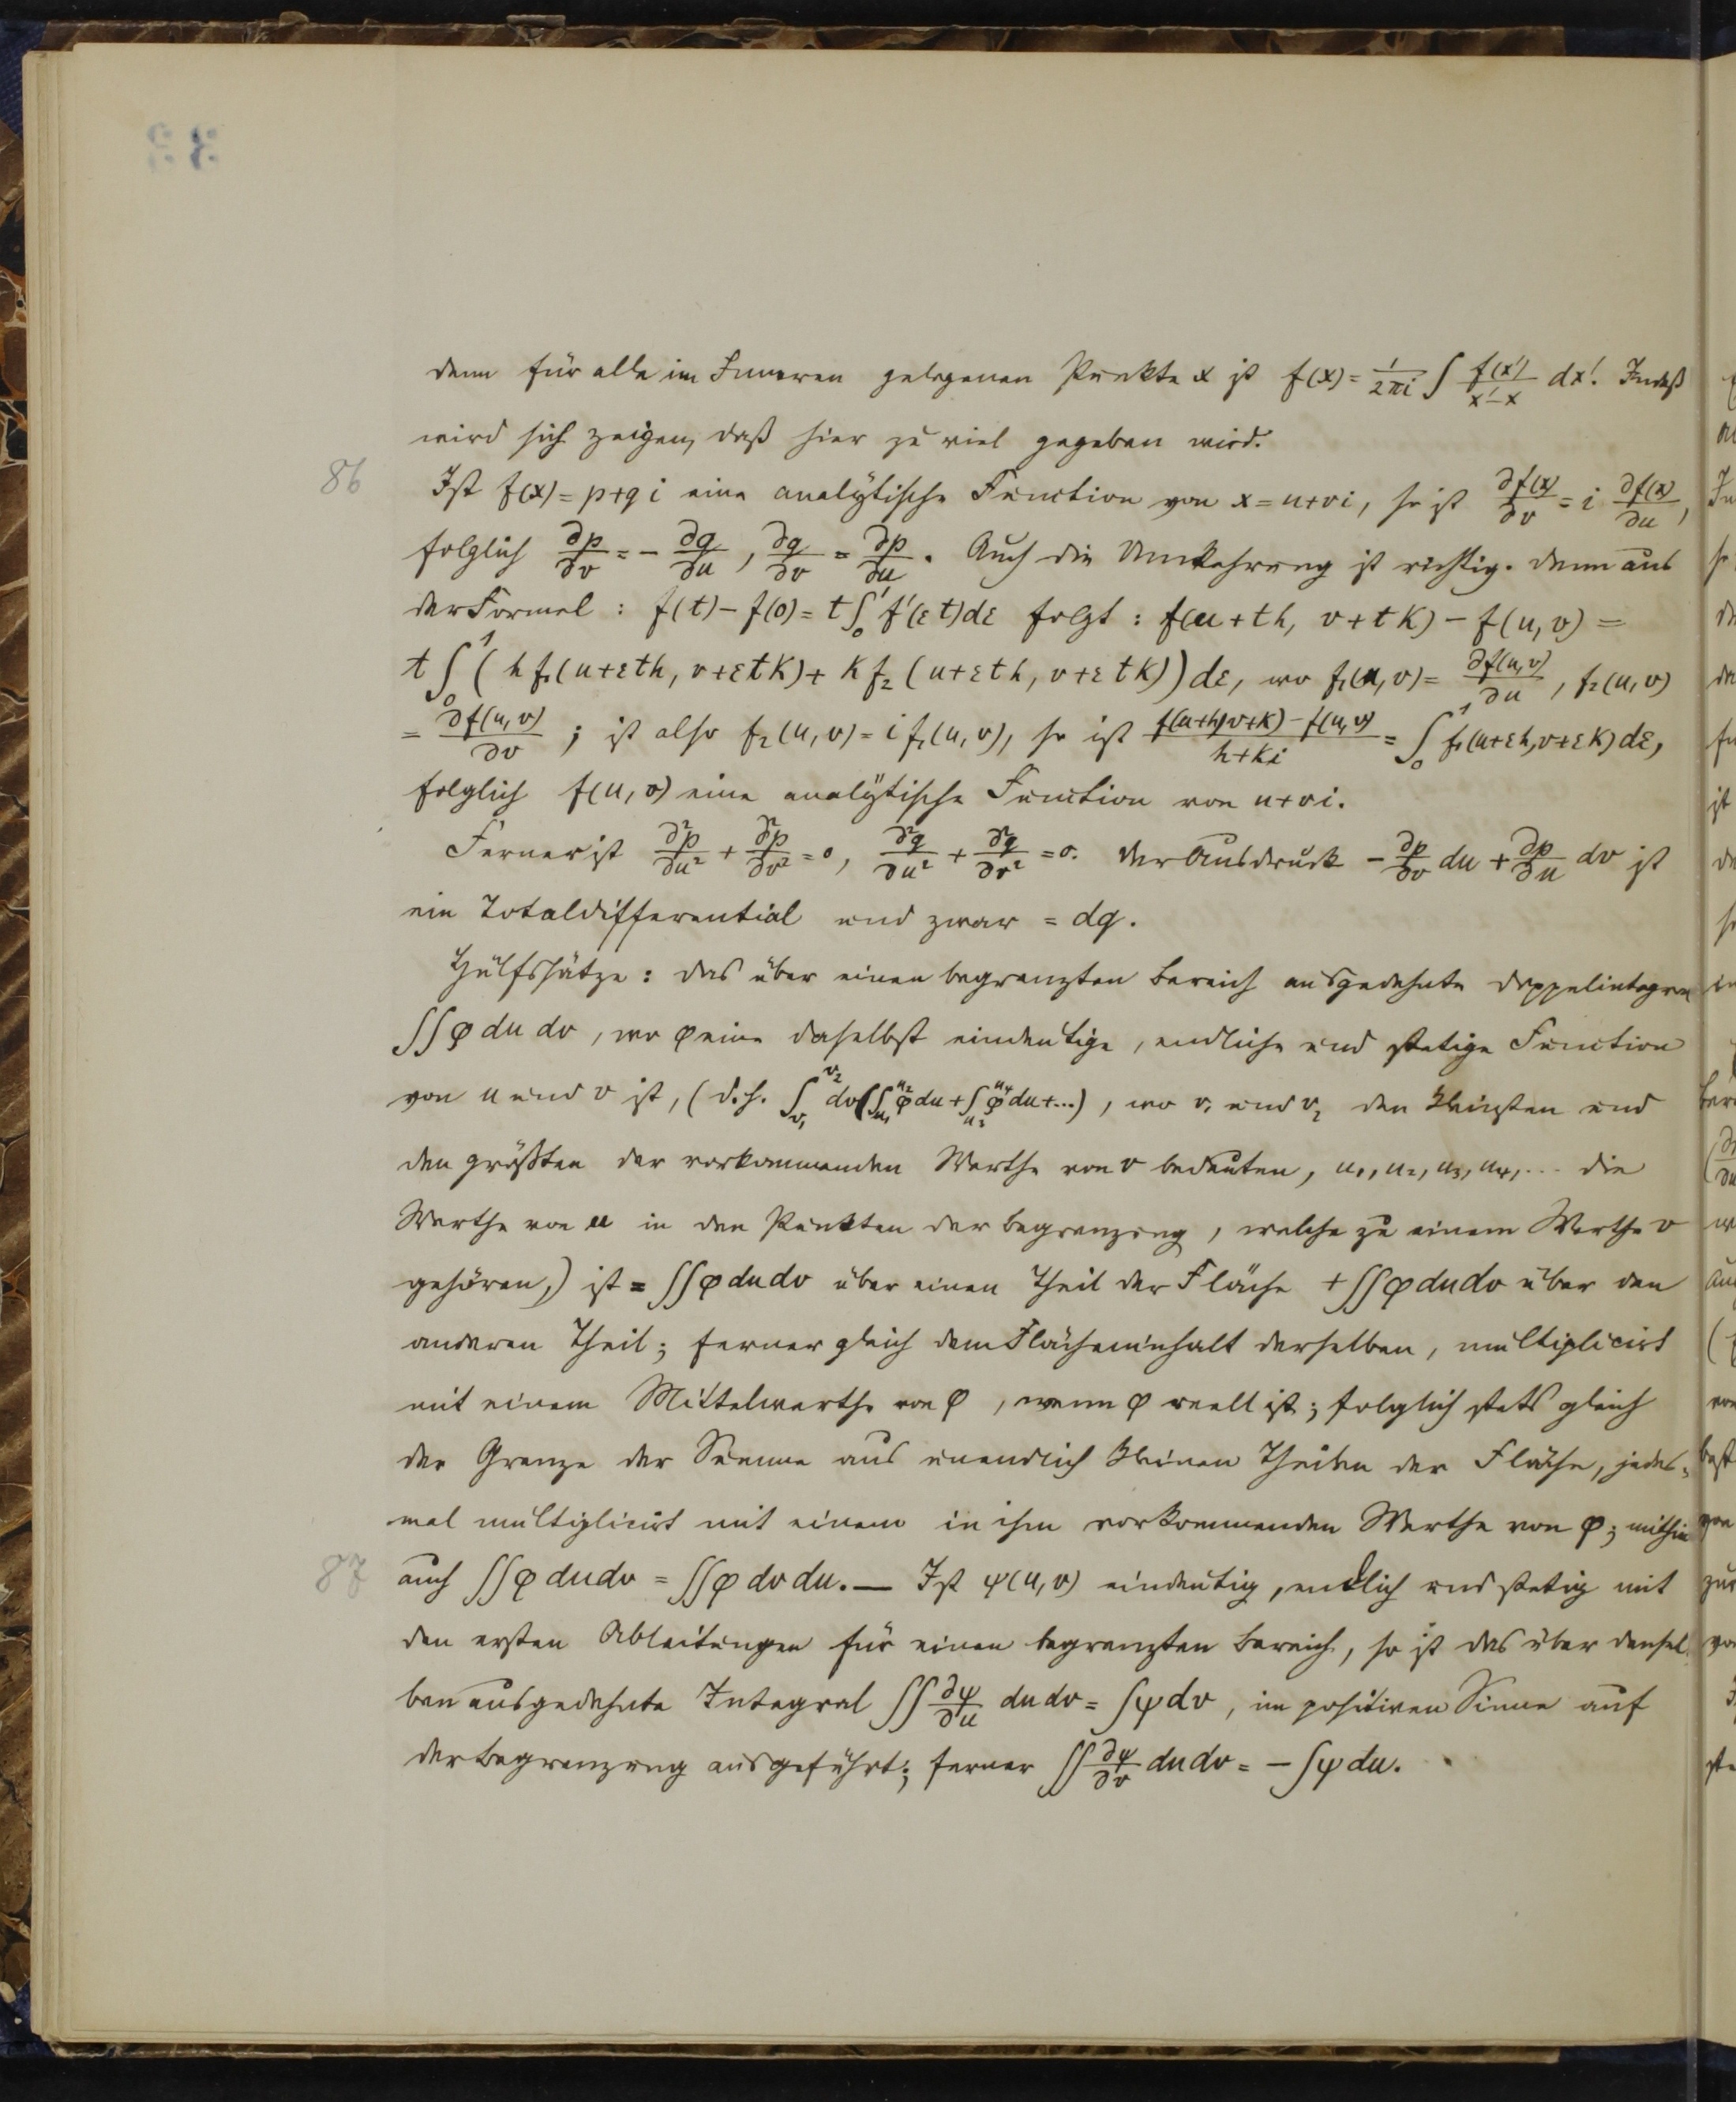 denn für alle im Inneren gelegenen Punkte x ist f(x) = 1/(2πi) ∫ f(x′)/(x′−x) dx′. Indeß
wird sich zeigen, daß hier zu viel gegeben wird.
86 Ist f(x) = p+qi eine analÿtische Function von x = u+vi, so ist ∂f(x)/∂v = i ∂f(x)/∂u,
folglich ∂p/∂v = − ∂q/∂u, ∂q/∂v = ∂p/∂u. Auch die Umkehrung ist richtig. Denn aus
der Formel: f(t) − f(0) = t∫₀¹ f′(εt)dε folgt: f(u+th, v+tk) − f(u,v) =
t∫₀¹ (h f₁(u+εth, v+εtk) + k f₂(u+εth, v+εtk)) dε, wo f₁(u,v) = ∂f(u,v)/∂u, f₂(u,v)
= ∂f(u,v)/∂v; ist also f₂(u,v) = i f₁(u,v), so ist (f(u+h,v+k) − f(u,v))/(h+ki) = ∫₀¹ f₁(u+εh, v+εk) dε,
folglich f(u,v) eine analÿtische Function von u+vi.
Ferner ist ∂²p/∂u² + ∂²p/∂v² = 0, ∂²q/∂u² + ∂²q/∂v² = 0. Der Ausdruck − ∂p/∂v du + ∂p/∂u dv ist
ein Totaldifferential und zwar = dq.
Hülfssätze: Das über einen begrenzten Bereich ausgedehnte Doppelintegral
∫∫φ du dv, wo φ eine daselbst eindeutige, endliche und stetige Function
von u und v ist, (d.h. ∫_{v₁}^{v₂} dv(∫_{u₁}^{u₂} φ du + ∫_{u₃}^{u₄} φ du + ...), wo v₁ und v₂ den kleinsten und
den größten der vorkommenden Werthe von v bedeuten, u₁, u₂, u₃, u₄, ... die
Werthe von u in den Punkten der Begrenzung, welche zu einem Werthe v
gehören,) ist = ∫∫φ du dv über einen Theil der Fläche + ∫∫φ du dv über den
anderen Theil; ferner gleich dem Flächeninhalt derselben, multiplicirt
mit einem Mittelwerthe von φ, wenn φ reell ist; folglich stets gleich
der Grenze der Summe aus unendlich kleinen Theilen der Fläche, jedes-
mal multiplicirt mit einem in ihm vorkommenden Werthe von φ; mithin
87 auch ∫∫φ du dv = ∫∫φ dv du. — Ist ψ(u,v) eindeutig, endlich und stetig mit
den ersten Ableitungen für einen begrenzten Bereich, so ist das über densel-
ben ausgedehnte Integral ∫∫ ∂ψ/∂u du dv = ∫ψ dv, im positiven Sinne auf
der Begrenzung ausgeführt; ferner ∫∫ ∂ψ/∂v du dv = − ∫ψ du.